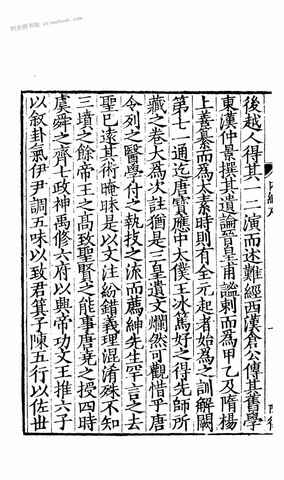 後越人得其一二演而述難經西漢倉公傳其舊學
東漢仲景撰其遺論晉皇甫謐刺而為甲乙及隋楊
上善纂而為太素時則有全元起者始為之訓解闕
第七一通迄唐寶應中太僕王冰篤好之得先師所
藏之卷大為次註猶是三皇遺文爛然可觀惜乎唐
令列之醫學付之執技之流而薦紳先生罕言之去
聖已遠其術晻昧是以文注紛錯義理混淆殊不知
三墳之餘帝王之高致聖賢之能事唐堯之授四時
虞舜之齊七政神禹修六府以興帝功文王推六子
以敘卦氣伊尹調五味以致君箕子陳五行以佐世